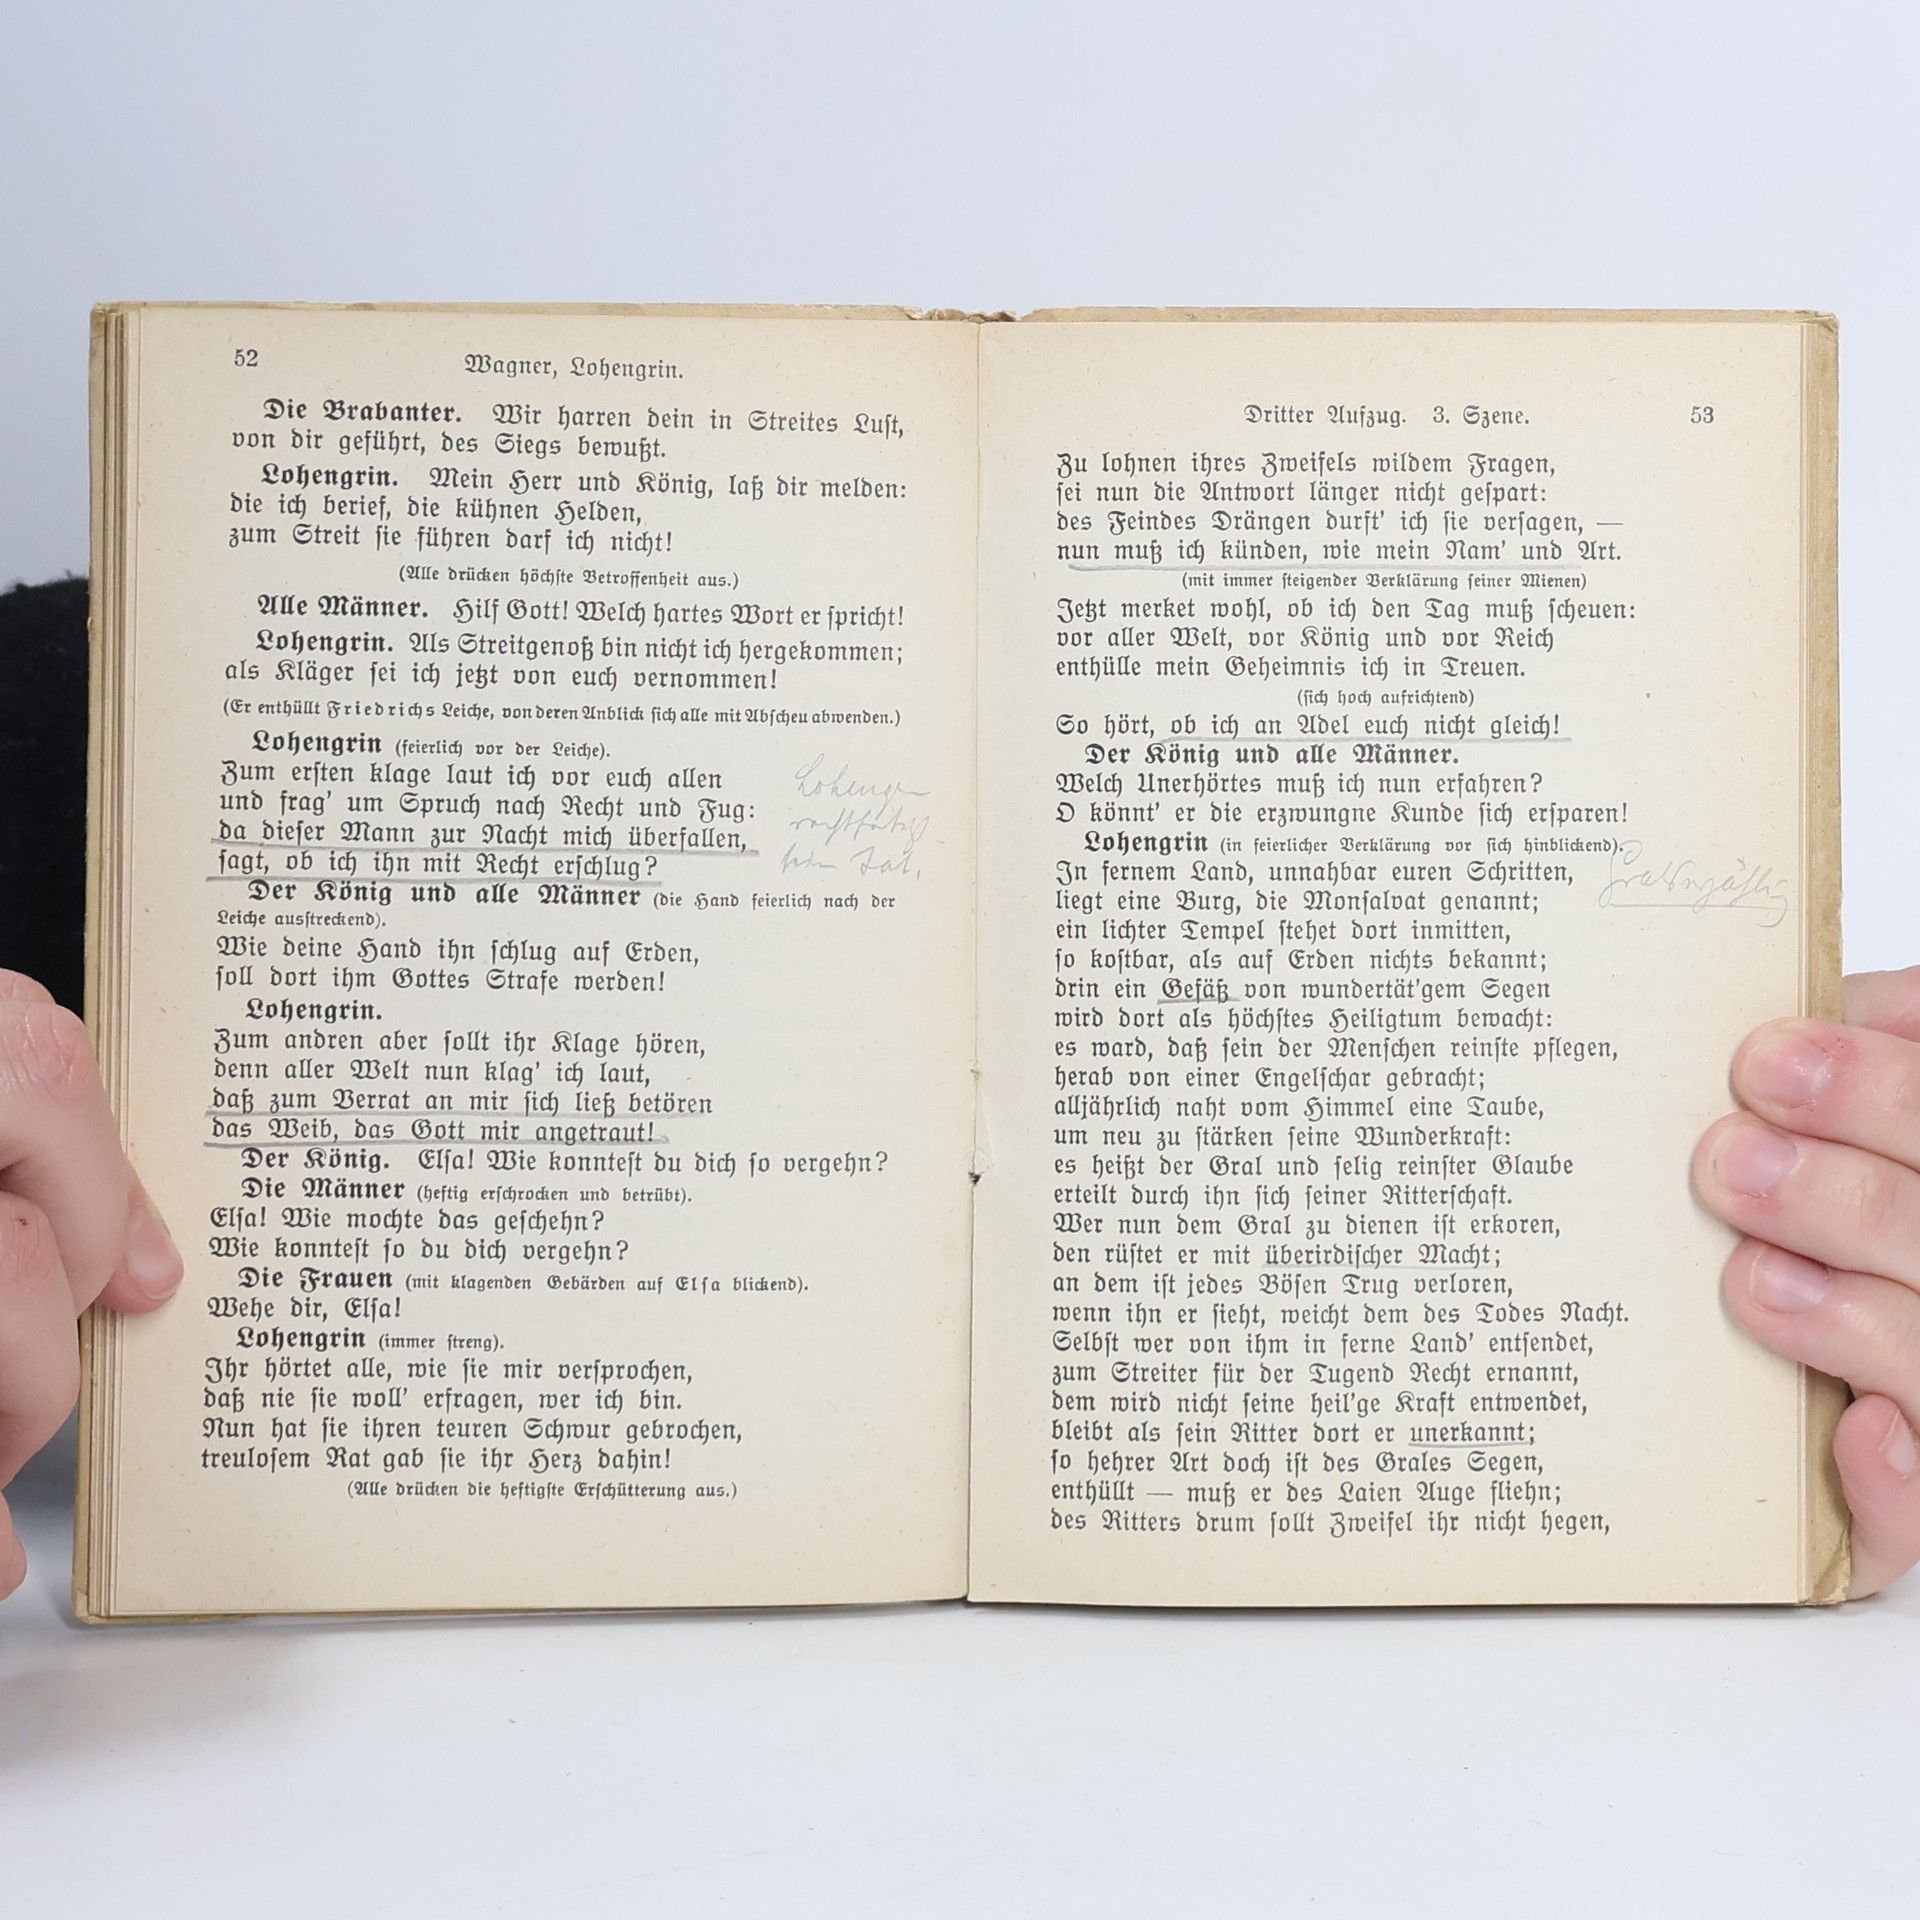 52
Wagner, Lohengrin.
Die Brabanter. Wir harren dein in Streites Luſt,
von dir geführt, des Siegs bewußt.
Lohengrin. Mein Herr und König, laß dir melden:
die ich berief, die kühnen Helden,
zum Streit ſie führen darf ich nicht!
(Alle drücken höchſte Betroffenheit aus.)
Alle Männer. Hilf Gott! Welch hartes Wort er ſpricht!
Lohengrin. Als Streitgenoß bin nicht ich hergekommen;
als Kläger ſei ich jetzt von euch vernommen!
(Er enthüllt Friedrichs Leiche, von deren Anblick ſich alle mit Abſcheu abwenden.)
Lohengrin (feierlich vor der Leiche).
Zum erſten klage laut ich vor euch allen
und frag' um Spruch nach Recht und Fug:
da dieſer Mann zur Nacht mich überfallen,
ſagt, ob ich ihn mit Recht erſchlug?
Lohengrin
rechtfertigt
ſeine Tat.
Der König und alle Männer (die Hand feierlich nach der
Leiche ausſtreckend).
Wie deine Hand ihn ſchlug auf Erden,
ſoll dort ihm Gottes Strafe werden!
Lohengrin.
Zum andren aber ſollt ihr Klage hören,
denn aller Welt nun klag' ich laut,
daß zum Verrat an mir ſich ließ betören
das Weib, das Gott mir angetraut!
Der König. Elſa! Wie konnteſt du dich ſo vergehn?
Die Männer (heftig erſchrocken und betrübt).
Elſa! Wie mochte das geſchehn?
Wie konnteſt ſo du dich vergehn?
Die Frauen (mit klagenden Gebärden auf Elſa blickend).
Wehe dir, Elſa!
Lohengrin (immer ſtreng).
Ihr hörtet alle, wie ſie mir verſprochen,
daß nie ſie woll' erfragen, wer ich bin.
Nun hat ſie ihren teuren Schwur gebrochen,
treuloſem Rat gab ſie ihr Herz dahin!
(Alle drücken die heftigſte Erſchütterung aus.)
Dritter Aufzug. 3. Szene.
53
Zu lohnen ihres Zweifels wildem Fragen,
ſei nun die Antwort länger nicht geſpart:
des Feindes Drängen durft' ich ſie verſagen, —
nun muß ich künden, wie mein Nam' und Art.
(mit immer ſteigender Verklärung ſeiner Mienen)
Jetzt merket wohl, ob ich den Tag muß ſcheuen:
vor aller Welt, vor König und vor Reich
enthülle mein Geheimnis ich in Treuen.
(ſich hoch aufrichtend)
So hört, ob ich an Adel euch nicht gleich!
Der König und alle Männer.
Welch Unerhörtes muß ich nun erfahren?
O könnt' er die erzwungne Kunde ſich erſparen!
Lohengrin (in feierlicher Verklärung vor ſich hinblickend).
In fernem Land, unnahbar euren Schritten,
liegt eine Burg, die Monſalvat genannt;
Gralserzählg
ein lichter Tempel ſtehet dort inmitten,
ſo koſtbar, als auf Erden nichts bekannt;
drin ein Gefäß von wundertät'gem Segen
wird dort als höchſtes Heiligtum bewacht:
es ward, daß ſein der Menſchen reinſte pflegen,
herab von einer Engelſchar gebracht;
alljährlich naht vom Himmel eine Taube,
um neu zu ſtärken ſeine Wunderkraft:
es heißt der Gral und ſelig reinſter Glaube
erteilt durch ihn ſich ſeiner Ritterſchaft.
Wer nun dem Gral zu dienen iſt erkoren,
den rüſtet er mit überirdiſcher Macht;
an dem iſt jedes Böſen Trug verloren,
wenn ihn er ſieht, weicht dem des Todes Nacht.
Selbſt wer von ihm in ferne Land' entſendet,
zum Streiter für der Tugend Recht ernannt,
dem wird nicht ſeine heil'ge Kraft entwendet,
bleibt als ſein Ritter dort er unerkannt;
ſo hehrer Art doch iſt des Grales Segen,
enthüllt — muß er des Laien Auge fliehn;
des Ritters drum ſollt Zweifel ihr nicht hegen,